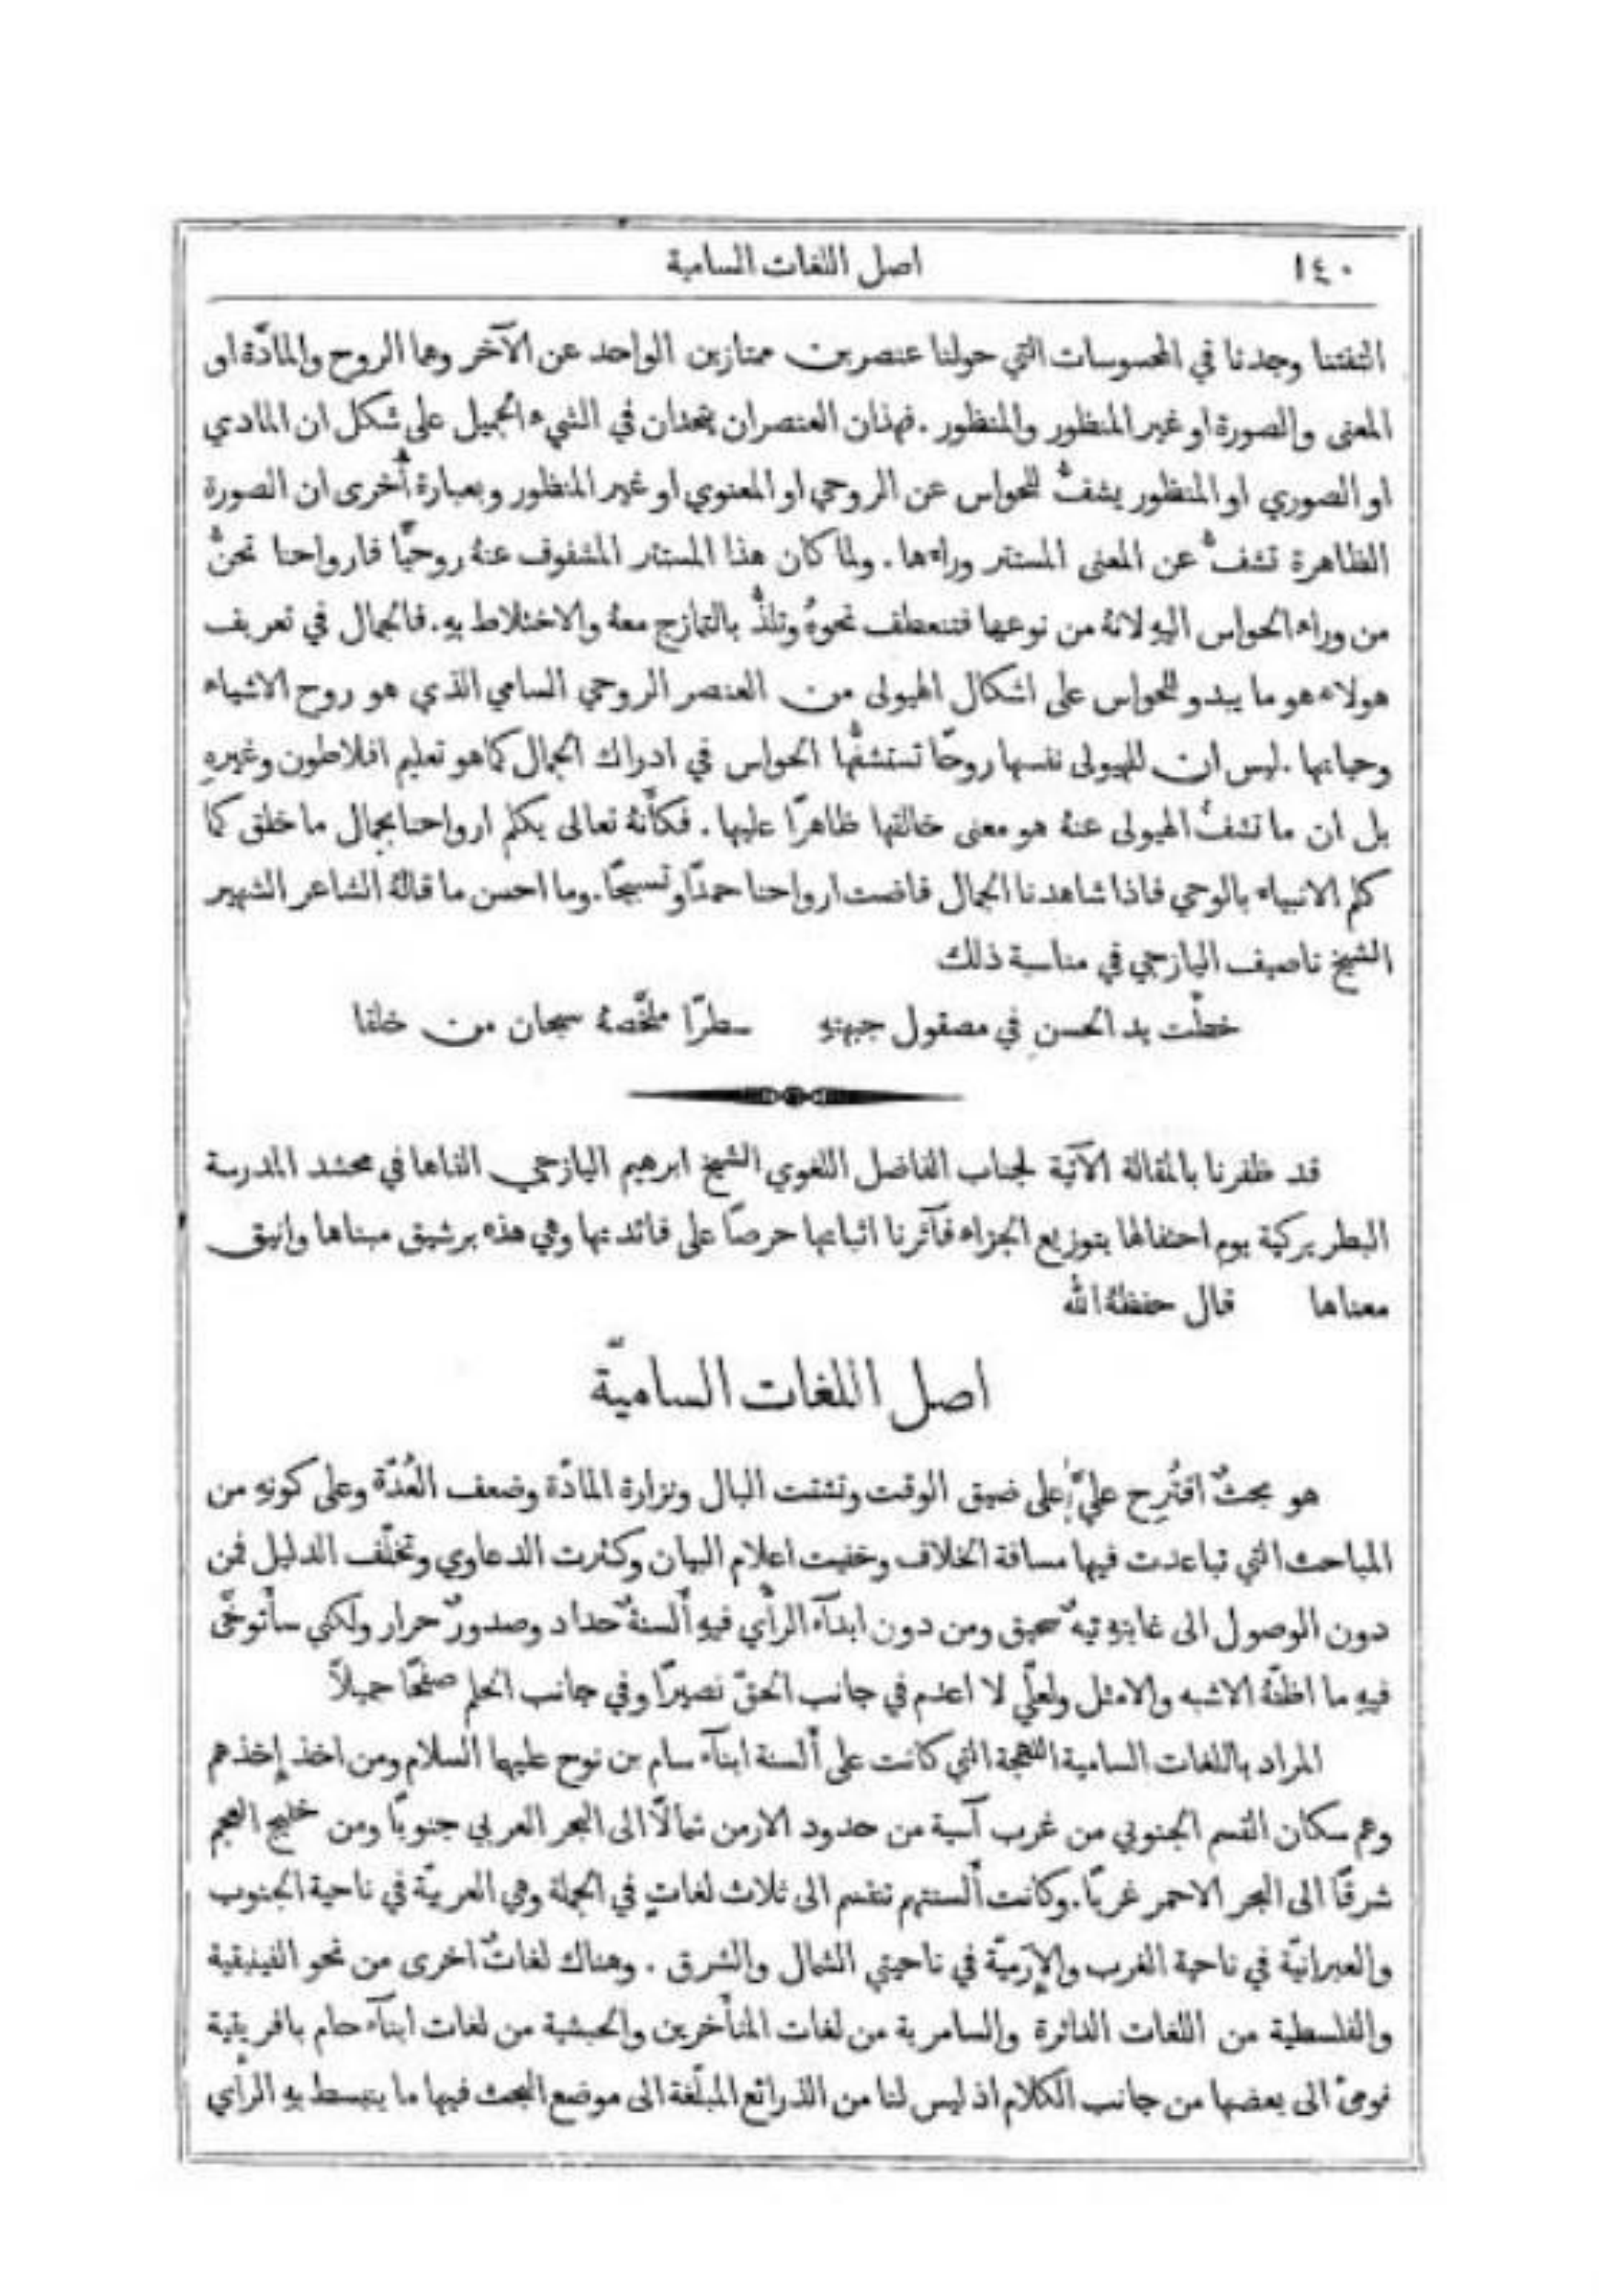 ١٤٠ اصل اللغات السامية
التفتنا وجدنا في المحسوسات التي حولنا عنصرين ممتازين الواحد عن الآخر وهما الروح والمادّة او
المعنى والصورة او غير المنظور والمنظور . فهذان العنصران يتحدان في الشيء الجميل على شكل ان المادي
او الصوري او المنظور يشفُّ للحواس عن الروحي او المعنوي او غير المنظور وبعبارة أُخرى ان الصورة
الظاهرة تشفُّ عن المعنى المستتر وراءها . ولما كان هذا المستتر المشفوف عنهُ روحيًّا فارواحنا تحنُّ
من وراء الحواس اليهِ لانهُ من نوعها فتنعطف نحوهُ وتلذُّ بالتمازج معهُ والاختلاط بهِ . فالجمال في تعريف
هولاء هو ما يبدو للحواس على اشكال الهيولى من العنصر الروحي السامي الذي هو روح الاشياء
وحياتها . ليس ان للهيولى نفسها روحًا تستشفُّها الحواس في ادراك الجمال كما هو تعليم افلاطون وغيرهِ
بل ان ما تشفُّ الهيولى عنهُ هو معنى خالقها ظاهرًا عليها . فكأَنهُ تعالى يكلم ارواحنا بجمال ما خلق كما
كلم الانبياء بالوحي فاذا شاهدنا الجمال فاضت ارواحنا حمدًا وتسبيحًا . وما احسن ما قالهُ الشاعر الشهير
الشيخ ناصيف اليازجي في مناسبة ذلك
خطّت يد الحسنِ في مصقول جبهتهِ سطرًا ملخّصهُ سبحان من خلقا
قد ظفرنا بالمقالة الآتية لجناب الفاضل اللغوي الشيخ ابرهيم اليازجي القاها في محتشد المدرسة
البطريركية يوم احتفالها بتوزيع الجزاء فآثرنا اثباتها حرصًا على فائدتها وهي هذه برشيق مبناها وانيق
معناها قال حفظهُ الله
اصل اللغات الساميّة
هو بحثٌ اقتُرِح عليَّ على ضيق الوقت وتشتت البال ونزارة المادّة وضعف العُدّة وعلى كونهِ من
المباحث التي تباعدت فيها مسافة الخلاف وخفيت اعلام البيان وكثرت الدعاوي وتخلّف الدليل فمن
دون الوصول الى غايتهِ تيهٌ سحيق ومن دون ابدآء الرأْي فيهِ أَلسنةٌ حداد وصدورٌ حرار ولكني سأَتوخَّى
فيهِ ما اظنّهُ الاشبه والامثل ولعلّي لا اعدم في جانب الحقّ نصيرًا وفي جانب الحلم صفحًا جميلاً
المراد باللغات السامية اللهجة التي كانت على أَلسنة ابنآء سام بن نوح عليهما السلام ومن اخذ إِخذهم
وهم سكان القسم الجنوبي من غرب آسية من حدود الارمن شمالًا الى البحر العربي جنوبًا ومن خليج العجم
شرقًا الى البحر الاحمر غربًا . وكانت أَلسنتهم تنقسم الى ثلاث لغاتٍ في الجملة وهي العربيّة في ناحية الجنوب
والعبرانيّة في ناحية الغرب والإِرَميّة في ناحيتي الشمال والشرق . وهناك لغاتٌ اخرى من نحو الفينيقية
والفلسطية من اللغات الداثرة والسامرية من لغات المتأَخرين والحبشية من لغات ابنآء حام بافريقية
نومئ الى بعضها من جانب الكلام اذ ليس لنا من الذرائع المبلّغة الى موضع البحث فيها ما ينبسط بهِ الرأْي